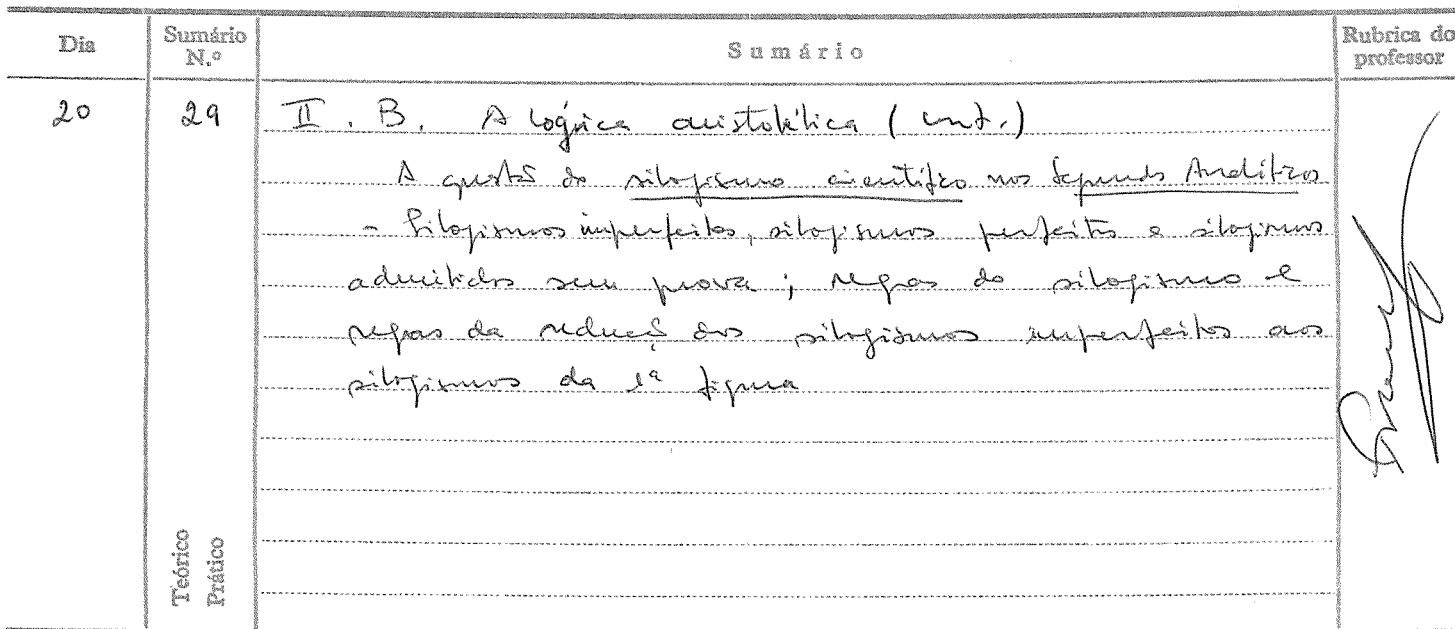 Dia
Sumário N.º
Sumário
Rubrica do professor
20
29
II. B. A lógica aristotélica (cont.)
A questão do silogismo científico nos Segundos Analíticos
- Silogismos imperfeitos, silogismos perfeitos e silogismos
admitidos sem prova; regras do silogismo e
regras da redução dos silogismos imperfeitos aos
silogismos da 1ª figura
Teórico
Prático